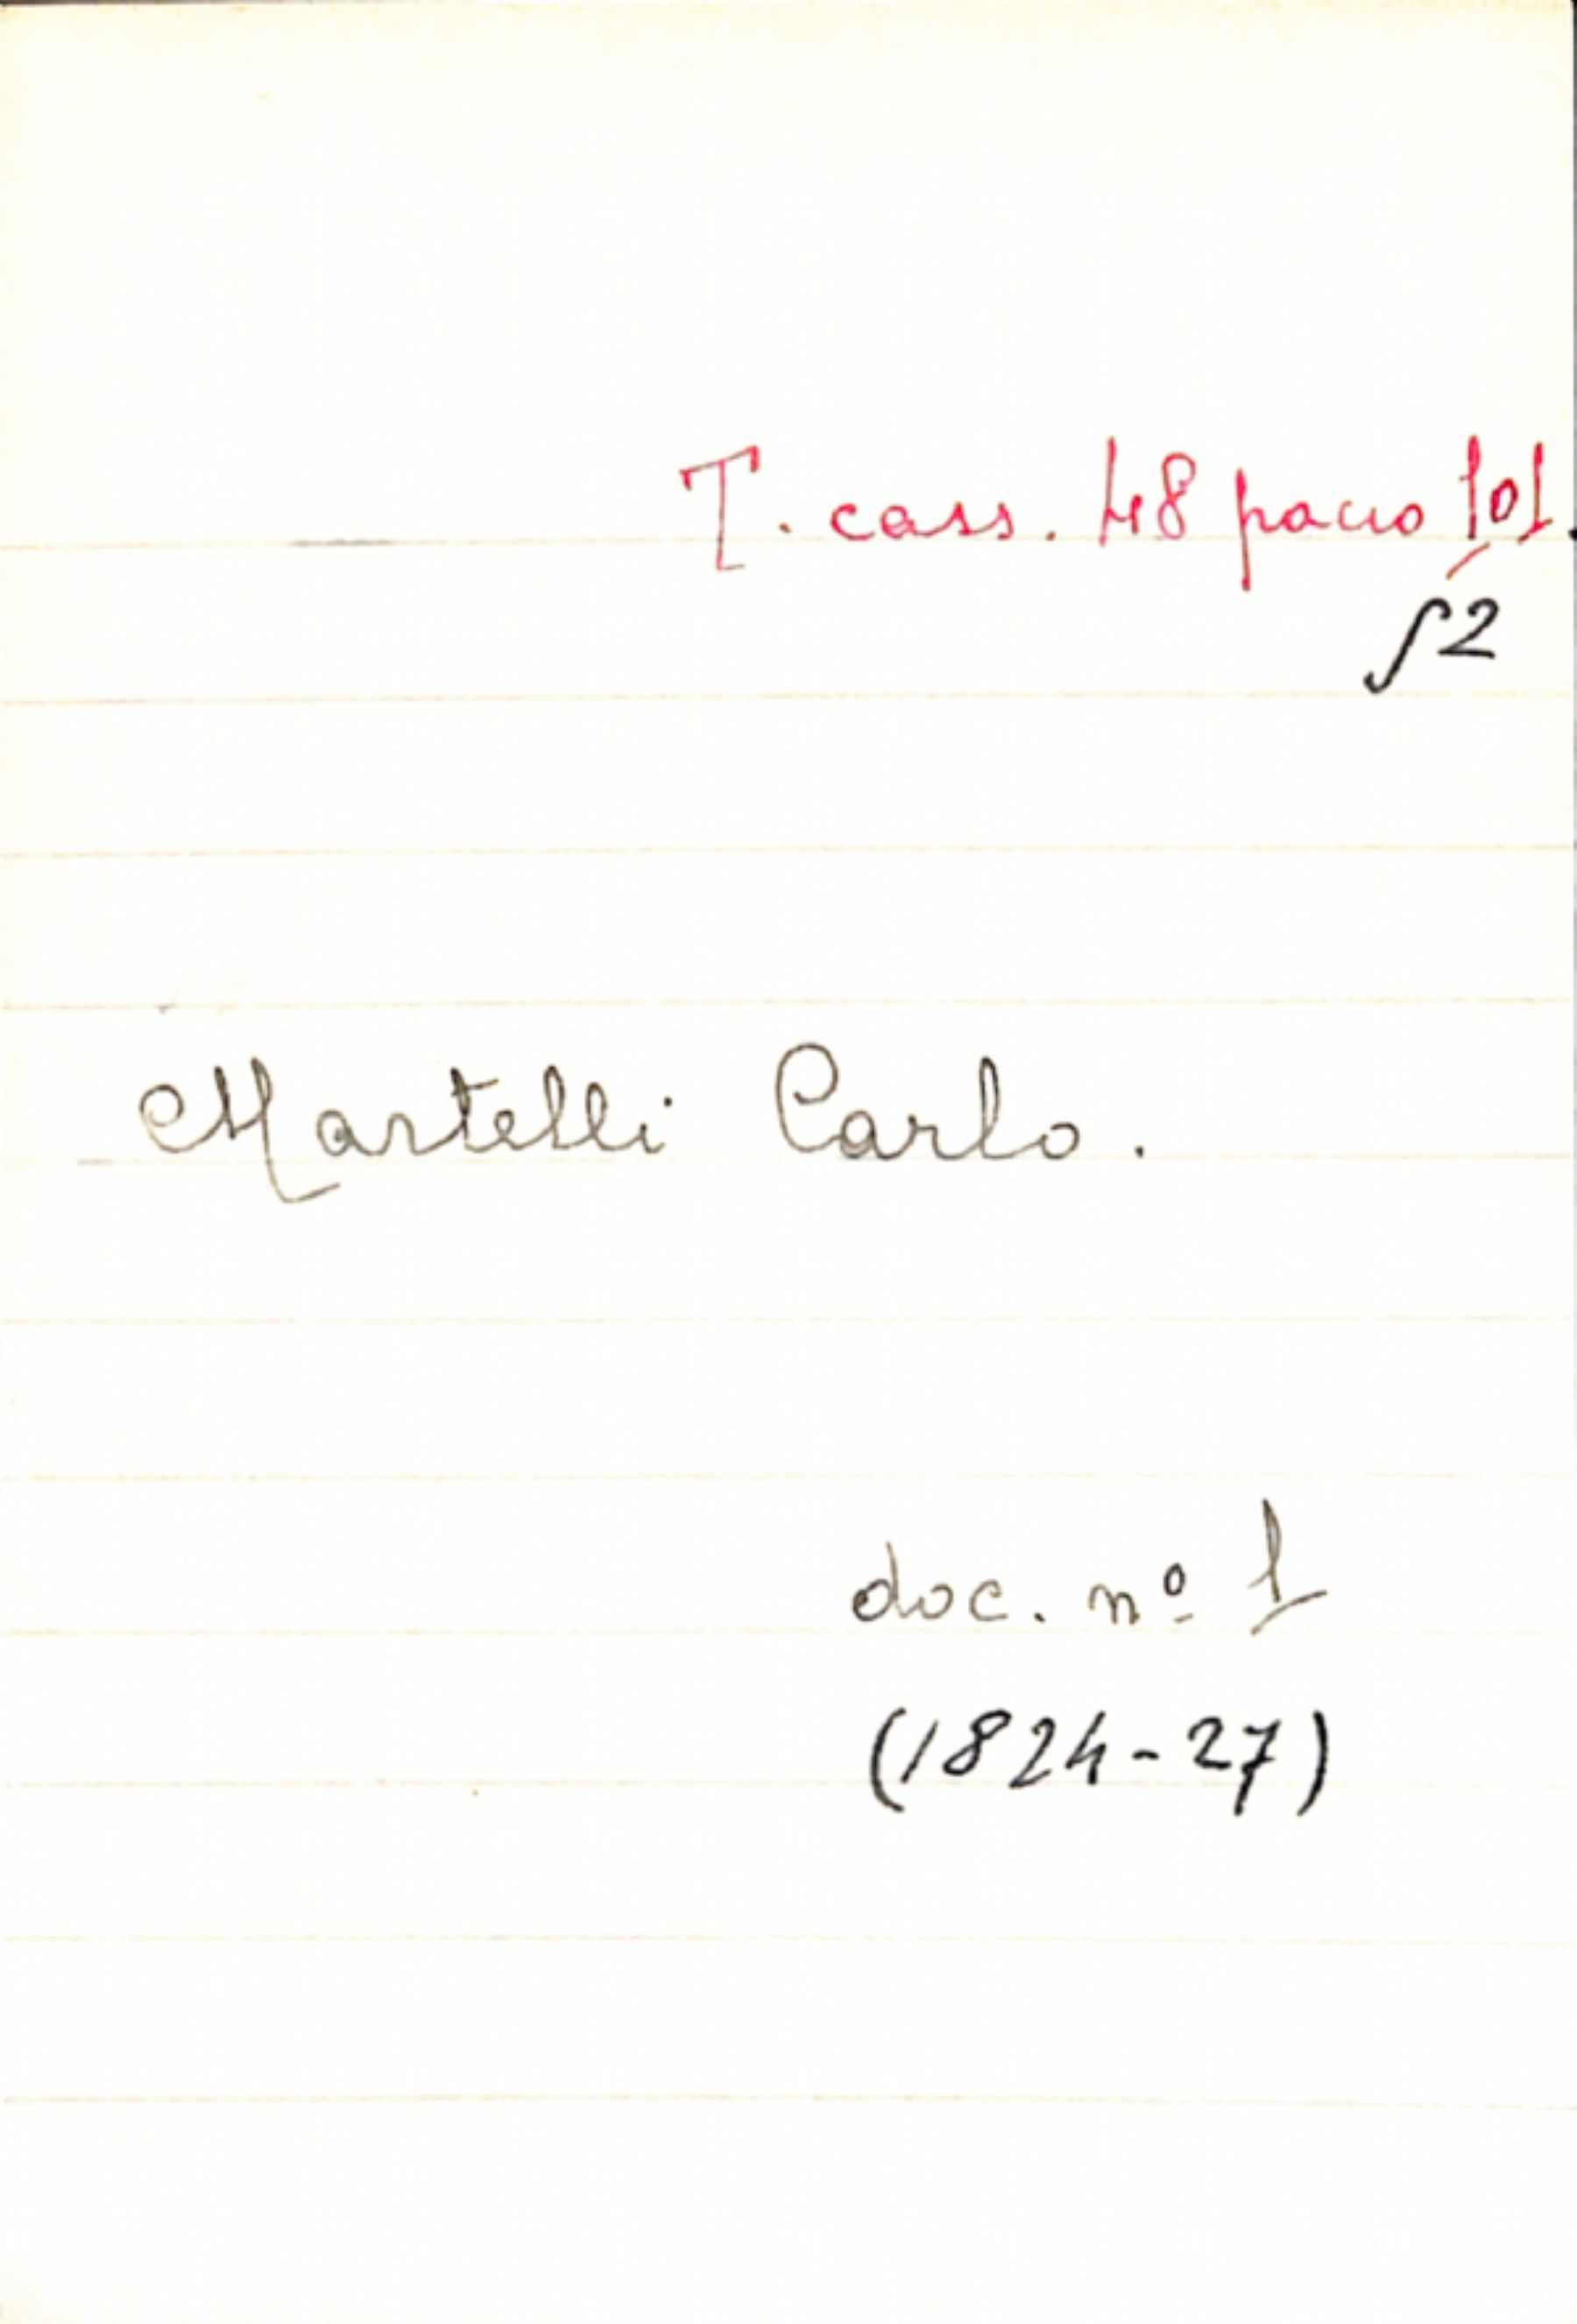 T. cass. 48 pacco 101.
∫2
Martelli Carlo.
doc. nº 1
(1824-27)